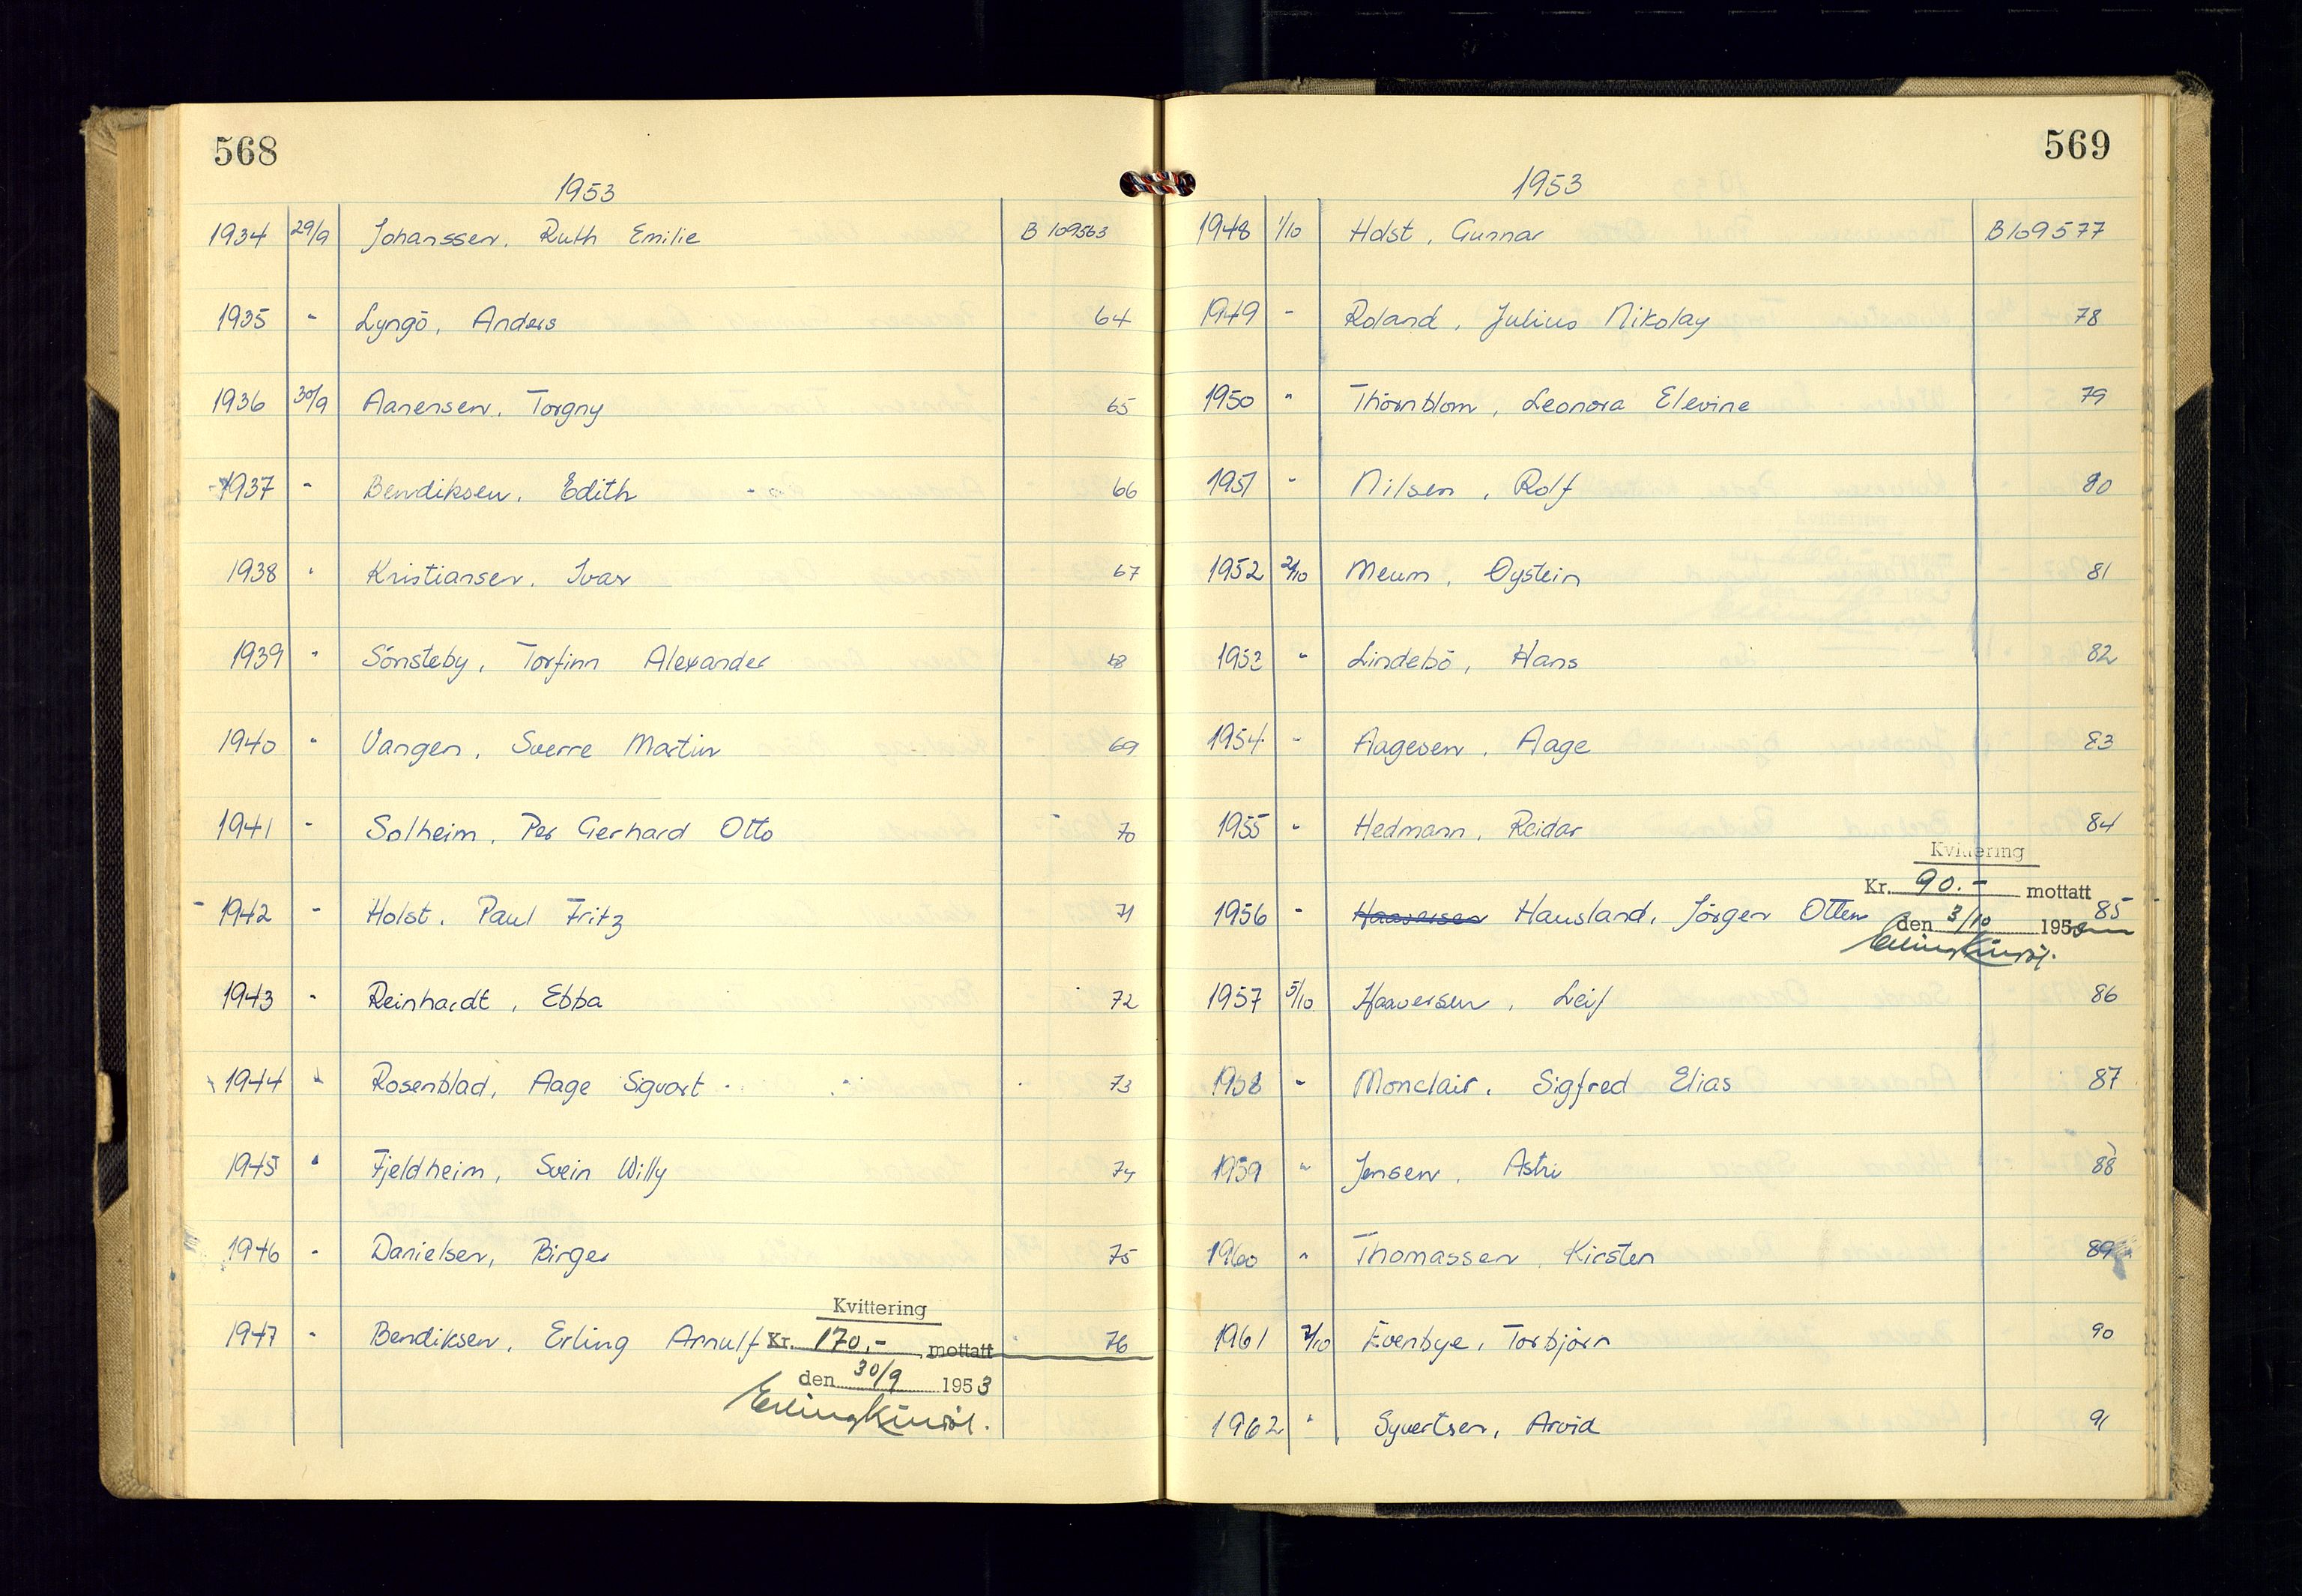 568
1953
1934 29/9 Johanssen, Ruth Emilie B 109563
1935 " Lyngö, Anders 64
1936 30/9 Aanensen, Torgny 65
1937 " Bendiksen, Edith 66
1938 " Kristiansen, Ivar 67
1939 " Sönsteby, Torfinn Alexander 68
1940 " Vangen, Sverre Martin 69
1941 " Solheim, Per Gerhard Otto 70
1942 " Holst, Paul Fritz 71
1943 " Reinhardt, Ebba 72
1944 " Rosenblad, Aage Sigvart 73
1945 " Fjeldheim, Svein Willy 74
1946 " Danielsen, Birger 75
Kvittering
1947 " Bendiksen, Erling Arnulf Kr. 170,- mottatt 76
den 30/9 1953
569
1953
1948 1/10 Holst, Gunnar B109577
1949 " Roland, Julius Nikolay 78
1950 " Thörnblom, Leonora Elevine 79
1951 " Nilsen, Rolf 80
1952 2/10 Meum, Øystein 81
1953 " Lindebö, Hans 82
1954 " Aagesen, Aage 83
1955 " Hedmann, Reidar 84
Kvittering
Kr. 90.- mottatt
1956 " Haaversen Hausland, Jörgen Otten 85
den 3/10 195
1957 5/10 Haaversen, Leif 86
1958 " Monclair, Sigfred Elias 87
1959 " Jensen, Astri 88
1960 " Thomassen, Kirsten 89
1961 7/10 Evenbye, Torbjörn 90
1962 " Syvertsen, Arvid 91